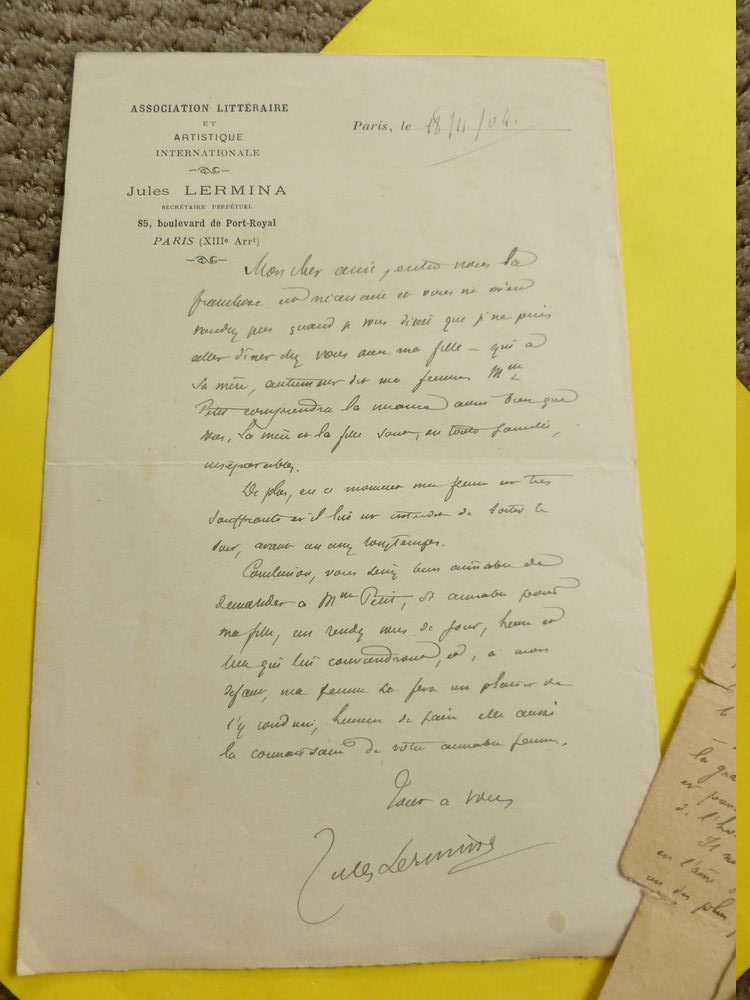 ASSOCIATION LITTÉRAIRE
ET
ARTISTIQUE
INTERNATIONALE
Jules LERMINA
SECRÉTAIRE PERPÉTUEL
85, boulevard de Port-Royal
PARIS (XIIIe Arrt)
Paris, le 18/11/04.
Mon cher ami, entre nous la
franchise est nécessaire et vous ne m'en
voudrez pas quand je vous dirai que je ne puis
aller dîner chez vous avec ma fille – qui a
sa mère, autrement dit ma femme. Mme
Petit comprendra la nuance aussi bien que
vous. La mère et la fille sont, en toute famille,
inséparables.
De plus, en ce moment ma femme est très
souffrante et il lui est interdit de sortir le
soir, avant un assez longtemps.
Conclusion, vous serez bien aimable de
demander à Mme Petit, si aimable pour
ma fille, un rendez vous de jour, heure et
lieu qui lui conviendront, et, à mon
défaut, ma femme se fera un plaisir de
l'y conduire, heureuse de faire elle aussi
la connaissance de votre aimable femme.
Tout à vous
Jules Lermina
la
et pour
de l'
Il
en l'âme
un des plus